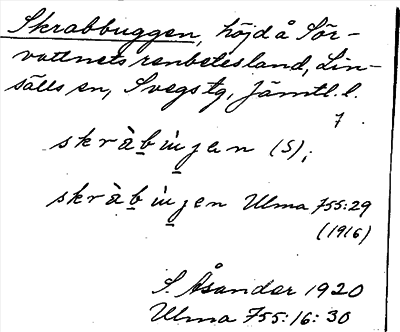 Skrabbuggen, höjd å Sör-
vattnets renbetesland, Lin-
sälls sn, Svegs tg, Jämtl. l.
7
skràb̲ìŋ̲en (S);
skràb̲ìŋ̲en Ulma 755:29
(1916)
S. Åsander 1920
Ulma 755:16:30